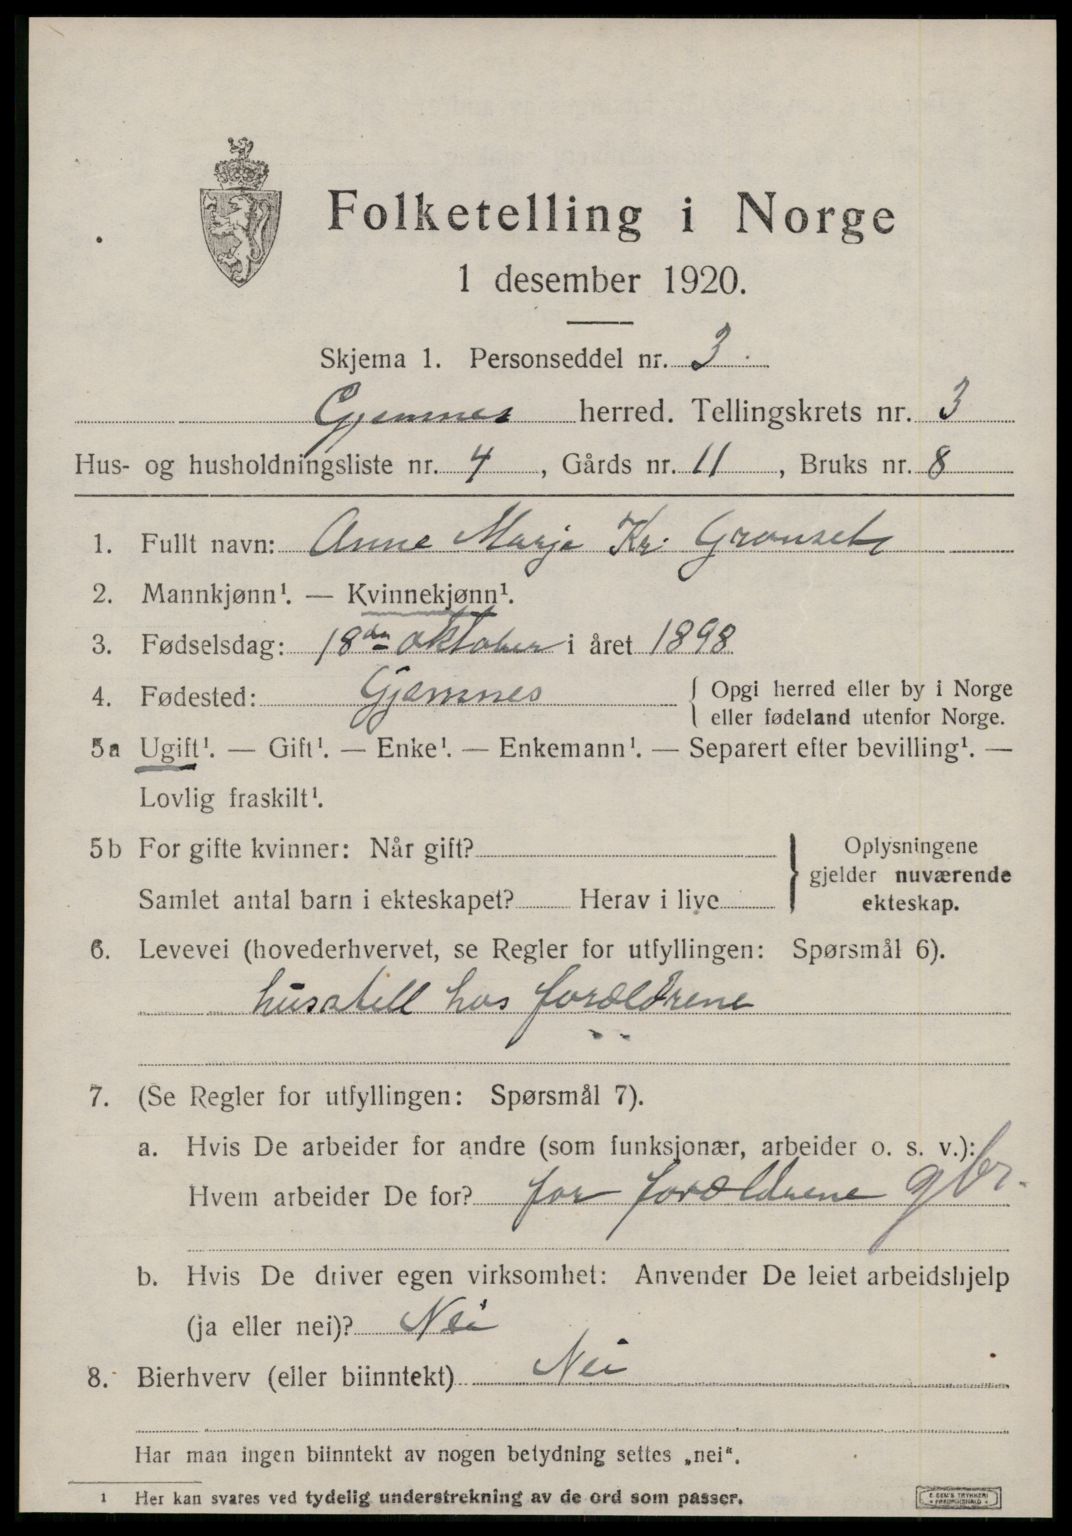 Folketelling i Norge
1 desember 1920.
Skjema 1. Personseddel nr. 3.
Gjemnes herred. Tellingskrets nr. 3
Hus- og husholdningsliste nr. 4, Gårds nr. 11, Bruks nr. 8
1. Fullt navn: Anne Marje Kr. Gronset
2. Mannkjønn¹. — Kvinnekjønn¹.
3. Fødselsdag: 18de oktober i året 1898
4. Fødested: Gjemnes { Opgi herred eller by i Norge
eller fødeland utenfor Norge.
5a Ugift¹. — Gift¹. — Enke¹. — Enkemann¹. — Separert efter bevilling¹. —
Lovlig fraskilt¹.
5b For gifte kvinner: Når gift? Oplysningene
gjelder nuværende
Samlet antal barn i ekteskapet? Herav i live ekteskap.
6. Levevei (hovederhvervet, se Regler for utfyllingen: Spørsmål 6).
husstell hos forældrene
7. (Se Regler for utfyllingen: Spørsmål 7).
a. Hvis De arbeider for andre (som funksjonær, arbeider o. s. v.):
Hvem arbeider De for? for forældrene gbr.
b. Hvis De driver egen virksomhet: Anvender De leiet arbeidshjelp
(ja eller nei)? Nei
8. Bierhverv (eller biinntekt) Nei
Har man ingen biinntekt av nogen betydning settes „nei“.
¹ Her kan svares ved tydelig understrekning av de ord som passer.